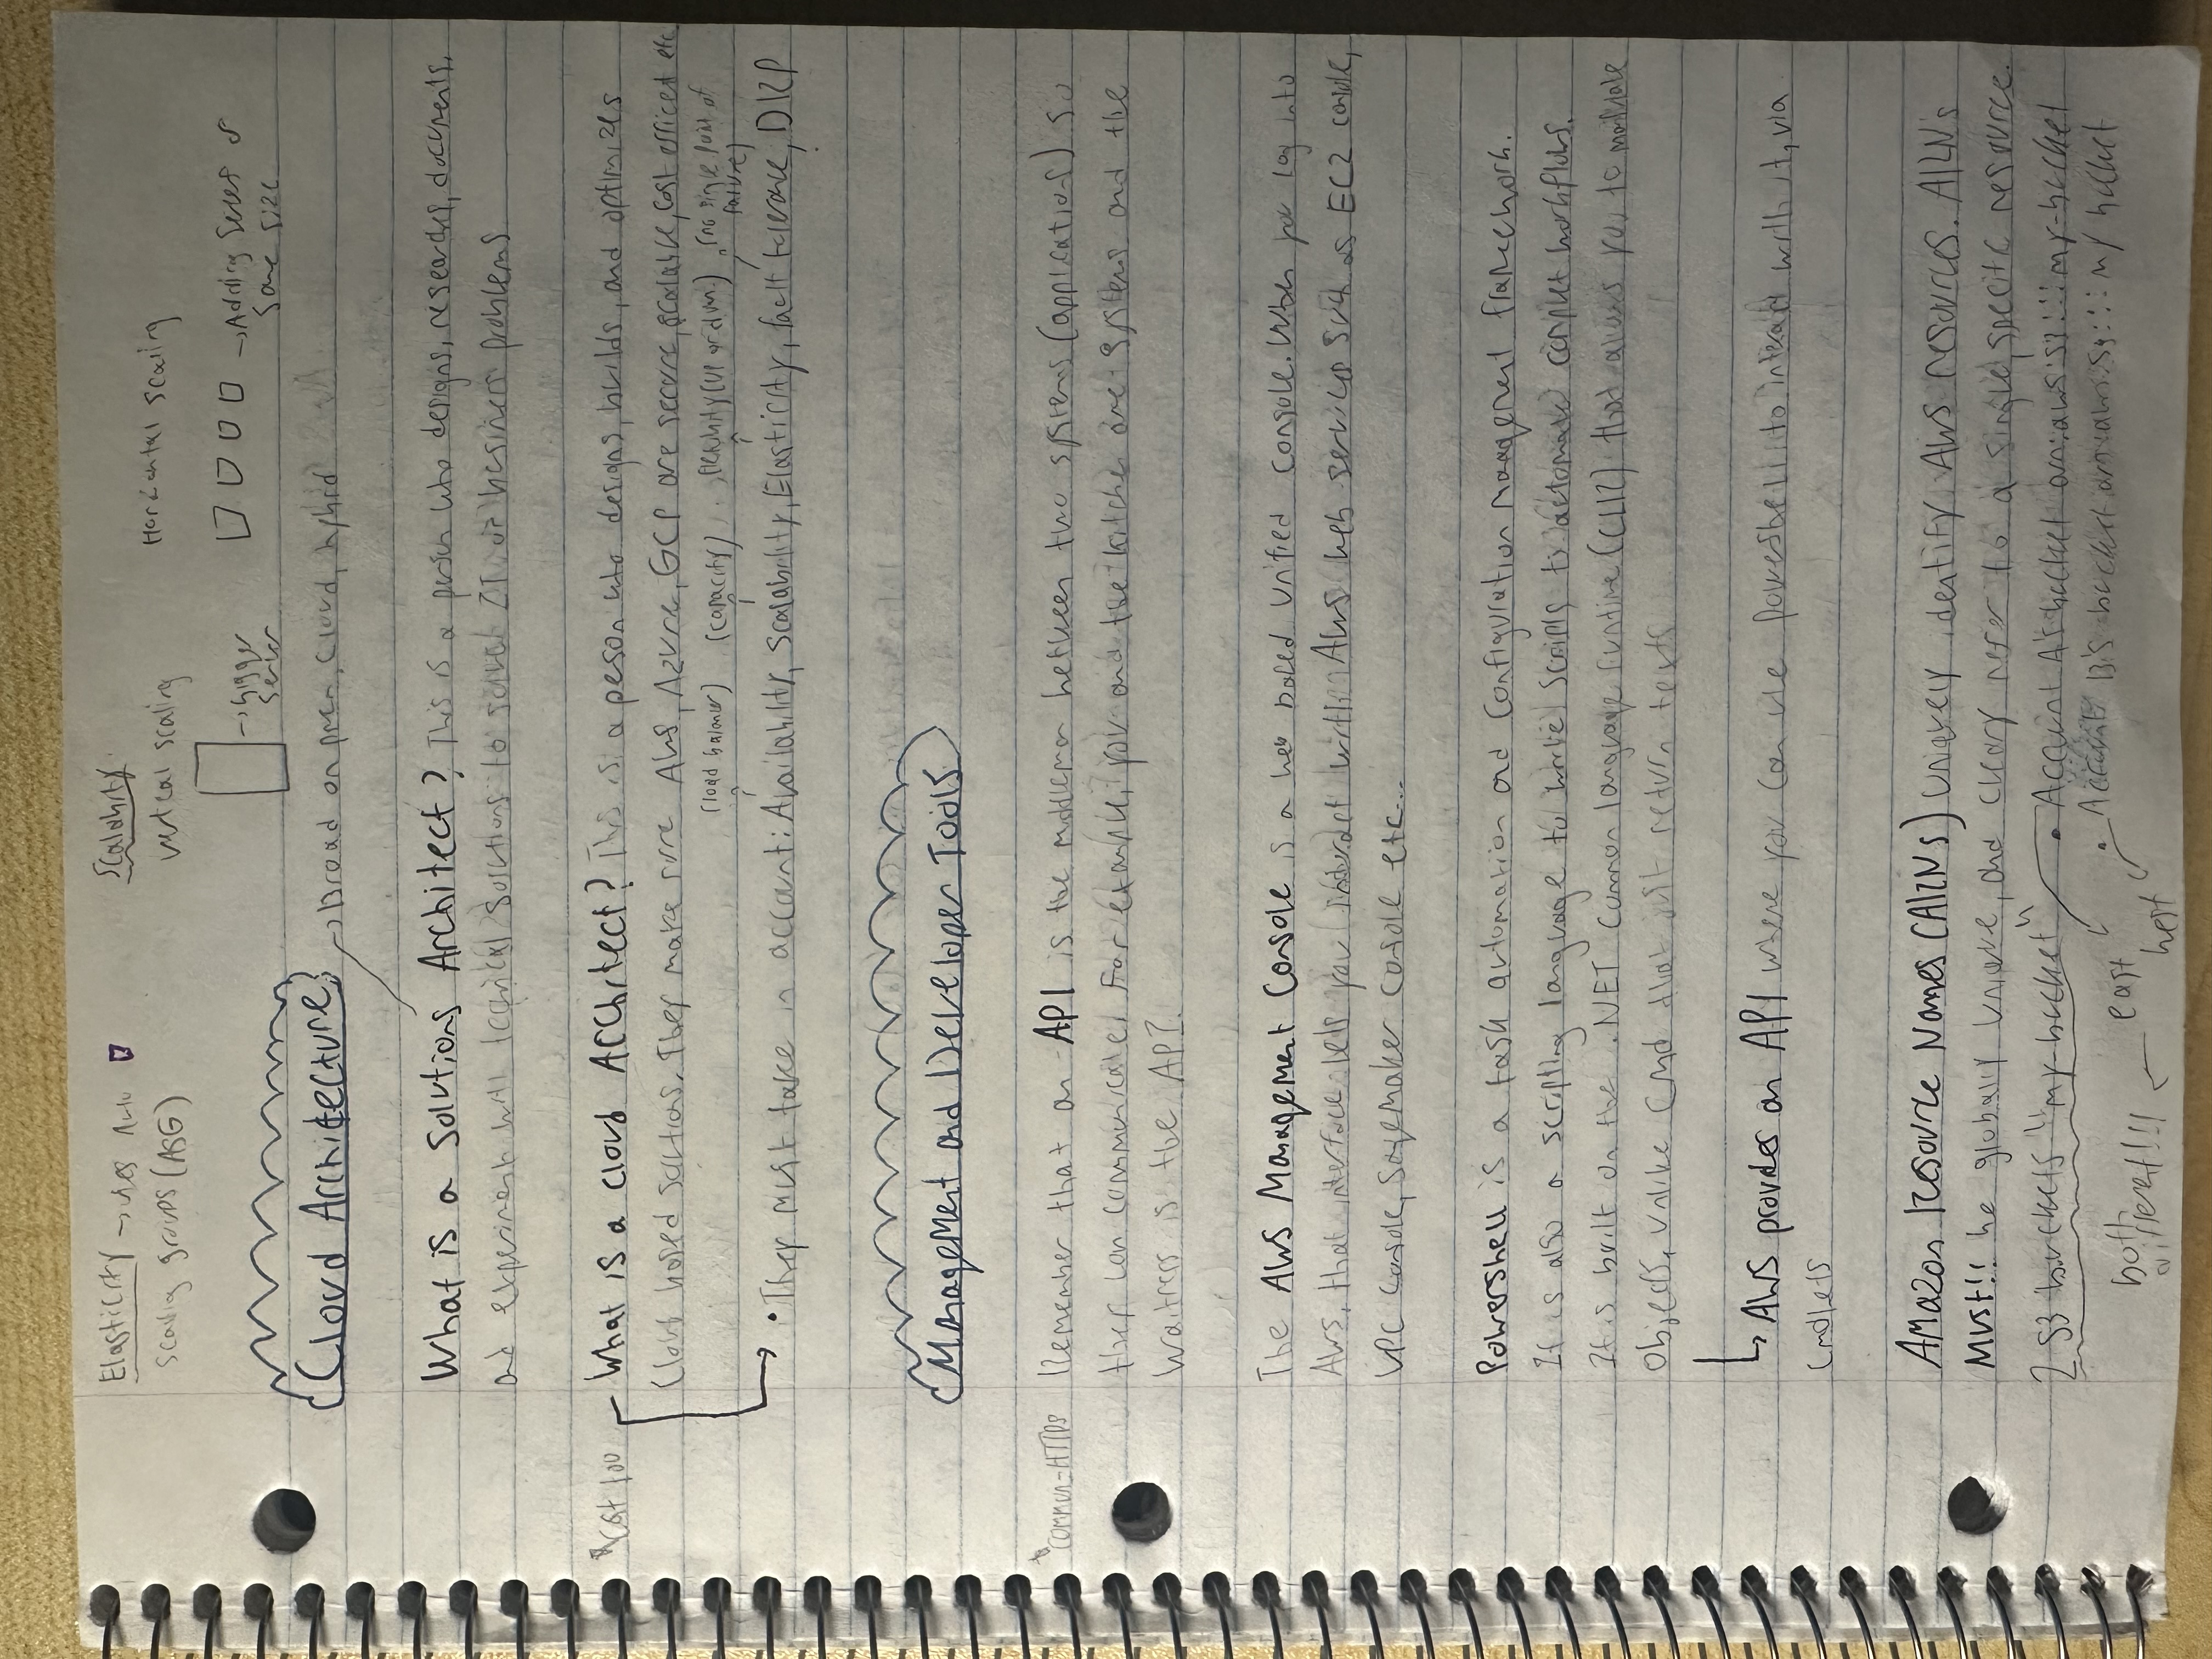 Elasticity → uses Auto
Scaling groups (ASG)
Scalability
vertical scaling
Horizontal scaling
→ bigger
server
→ Adding series of
same size
Cloud Architecture
→ Broad on prem, cloud, hybrid
What is a Solutions Architect? This is a person who designs, researches, documents,
and experiments with technical solutions to solve IT or business problems
*Cost too
What is a cloud Architect? This is a person who designs, builds, and optimizes
cloud based solutions. They make sure AWS, Azure, GCP are secure, scalable, cost efficient etc
(load balancer) (capacity) flexibility (up or down) (no single point of
failure)
• They must take in account: Availability, Scalability, Elasticity, fault tolerance, DRP
Management and Developer Tools
*commun-HTTPS
Remember that an API is the middleman between two systems (applications) so
they can communicate. For example, you and the kitchen are systems and the
waitress is the API.
The AWS Management Console is a web based unified console. When you log into
AWS, that interface lets you interact with AWS web services such as EC2 console,
VPC console, Sagemaker console etc...
Powershell is a task automation and configuration management framework.
It is also a scripting language to write scripts to automate complex workflows.
It is built on the .NET Common language runtime (CLR) that allows you to manipulate
objects, unlike cmd that just return texts
↳ AWS provides an API where you can use powershell to interact with it, via
cmdlets
Amazon Resource Names (ARNs) uniquely identify AWS resources. ARN's
MUST!! be globally unique, and cleary refer to a single, specific resource.
2 S3 buckets "my-bucket"
• Account A's bucket arn:aws:s3:::my-bucket
• Account B's bucket arn:aws:s3:::my bucket
both
different!!!
← east
west